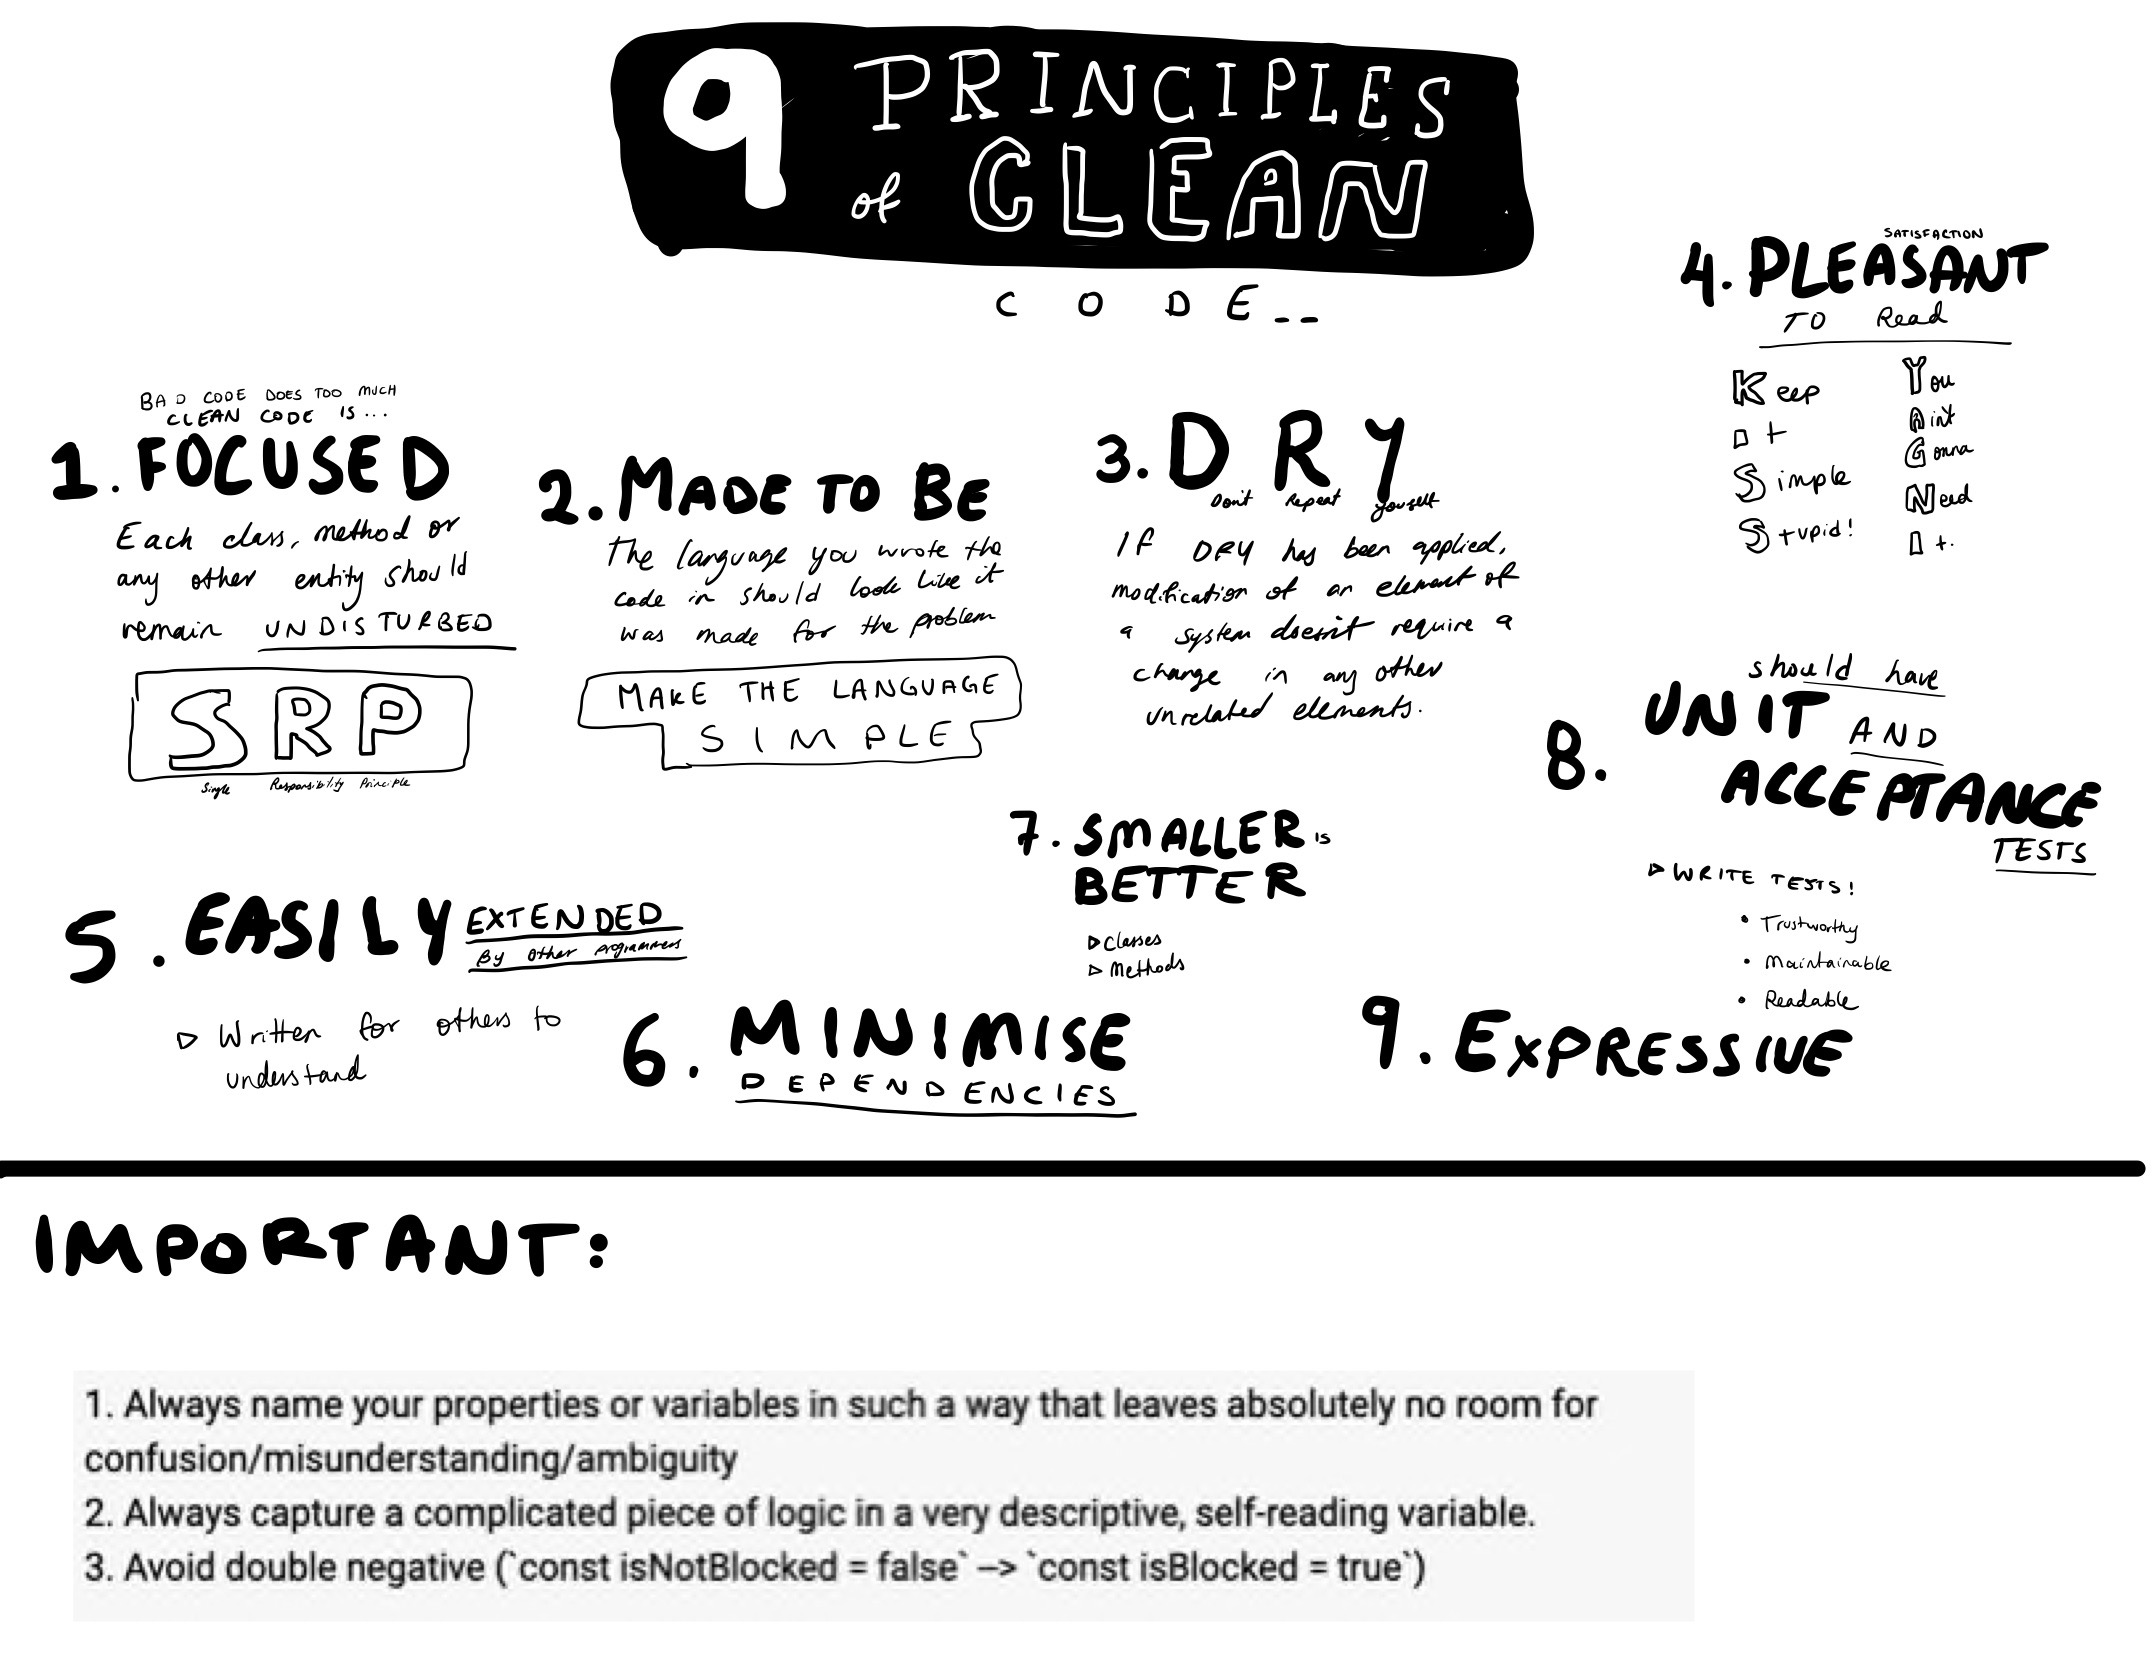 9 PRINCIPLES
of CLEAN
CODE__
BAD CODE DOES TOO MUCH
CLEAN CODE IS...
1. FOCUSED
Each class, method or
any other entity should
remain UNDISTURBED
SRP
Single Responsibility Principle
2. MADE TO BE
The language you wrote the
code in should look like it
was made for the problem
MAKE THE LANGUAGE
SIMPLE
3. DRY
Don't Repeat yourself
IF DRY has been applied,
modification of an element of
a system doesn't require a
change in any other
unrelated elements.
SATISFACTION
4. PLEASANT
TO Read
Keep
It
Simple
Stupid!
You
Aint
Gonna
Need
It.
5. EASILY EXTENDED
By other programmers
▷ Written for others to
understand
6. MINIMISE
DEPENDENCIES
7. SMALLER IS
BETTER
▷ Classes
▷ Methods
should have
8. UNIT AND
ACCEPTANCE
TESTS
▷ WRITE TESTS!
• Trustworthy
• Maintainable
• Readable
9. EXPRESSIVE
IMPORTANT:
1. Always name your properties or variables in such a way that leaves absolutely no room for
confusion/misunderstanding/ambiguity
2. Always capture a complicated piece of logic in a very descriptive, self-reading variable.
3. Avoid double negative (`const isNotBlocked = false` --> `const isBlocked = true`)